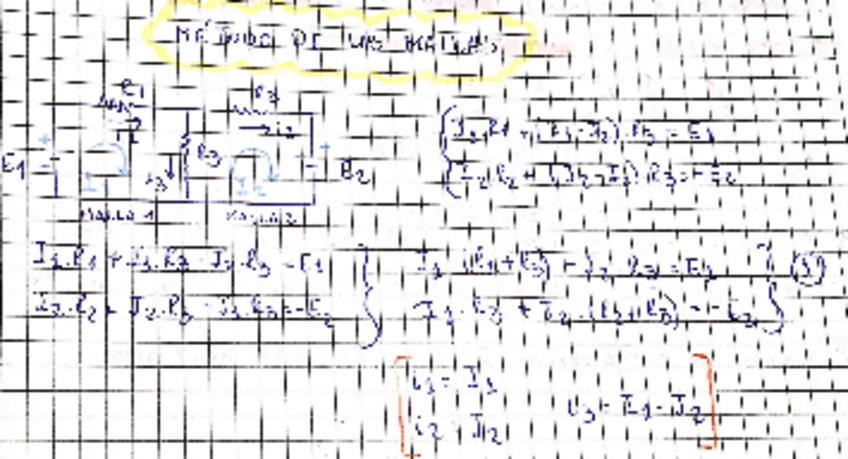 MÉTODO DE LAS MALLAS
R1 R2
i2
E1 I1 i3 R3 I2 E2
MALLA 1 MALLA 2
I1.R1 + (I1-I2).R3 = E1
I2.R2 + (I2-I1).R3 = -E2
I1.R1 + I1.R3 - I2.R3 = E1
I2.R2 + I2.R3 - I1.R3 = -E2
I1 (R1+R3) - I2 R3 = E1
I1.R3 + I2.(R2+R3) = -E2
i1 = I1
i2 = I2
i3 = I1 - I2